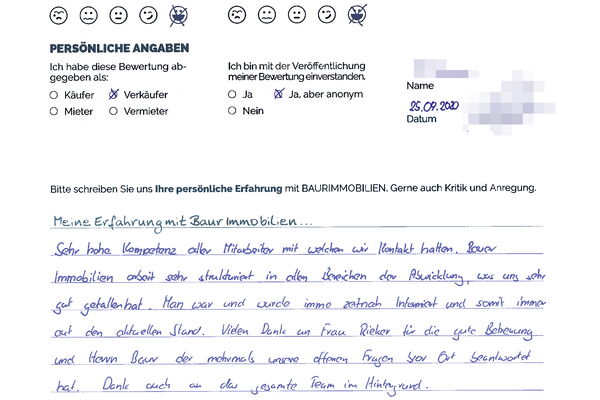 PERSÖNLICHE ANGABEN
Ich habe diese Bewertung ab-
gegeben als:
Käufer Verkäufer
Mieter Vermieter
Ich bin mit der Veröffentlichung
meiner Bewertung einverstanden.
Ja Ja, aber anonym
Nein
Name
25.09.2020
Datum
Bitte schreiben Sie uns Ihre persönliche Erfahrung mit BAURIMMOBILIEN. Gerne auch Kritik und Anregung.
Meine Erfahrung mit Baur Immobilien...
Sehr hohe Kompetenz aller Mitarbeiter mit welchen wir Kontakt hatten. Bauer
Immobilien arbeit sehr strukturiert in allen Bereichen der Abwicklung, was uns sehr
gut gefallen hat. Man war und wurde imme zeitnah Informiert und somit immer
auf den aktuellen Stand. Vielen Dank an Frau Rieker für die gute Betreuung
und Herrn Baur der mehrmals unsere offenen Fragen vor Ort beantwortet
hat. Dank auch an das gesamte Team im Hintergrund.